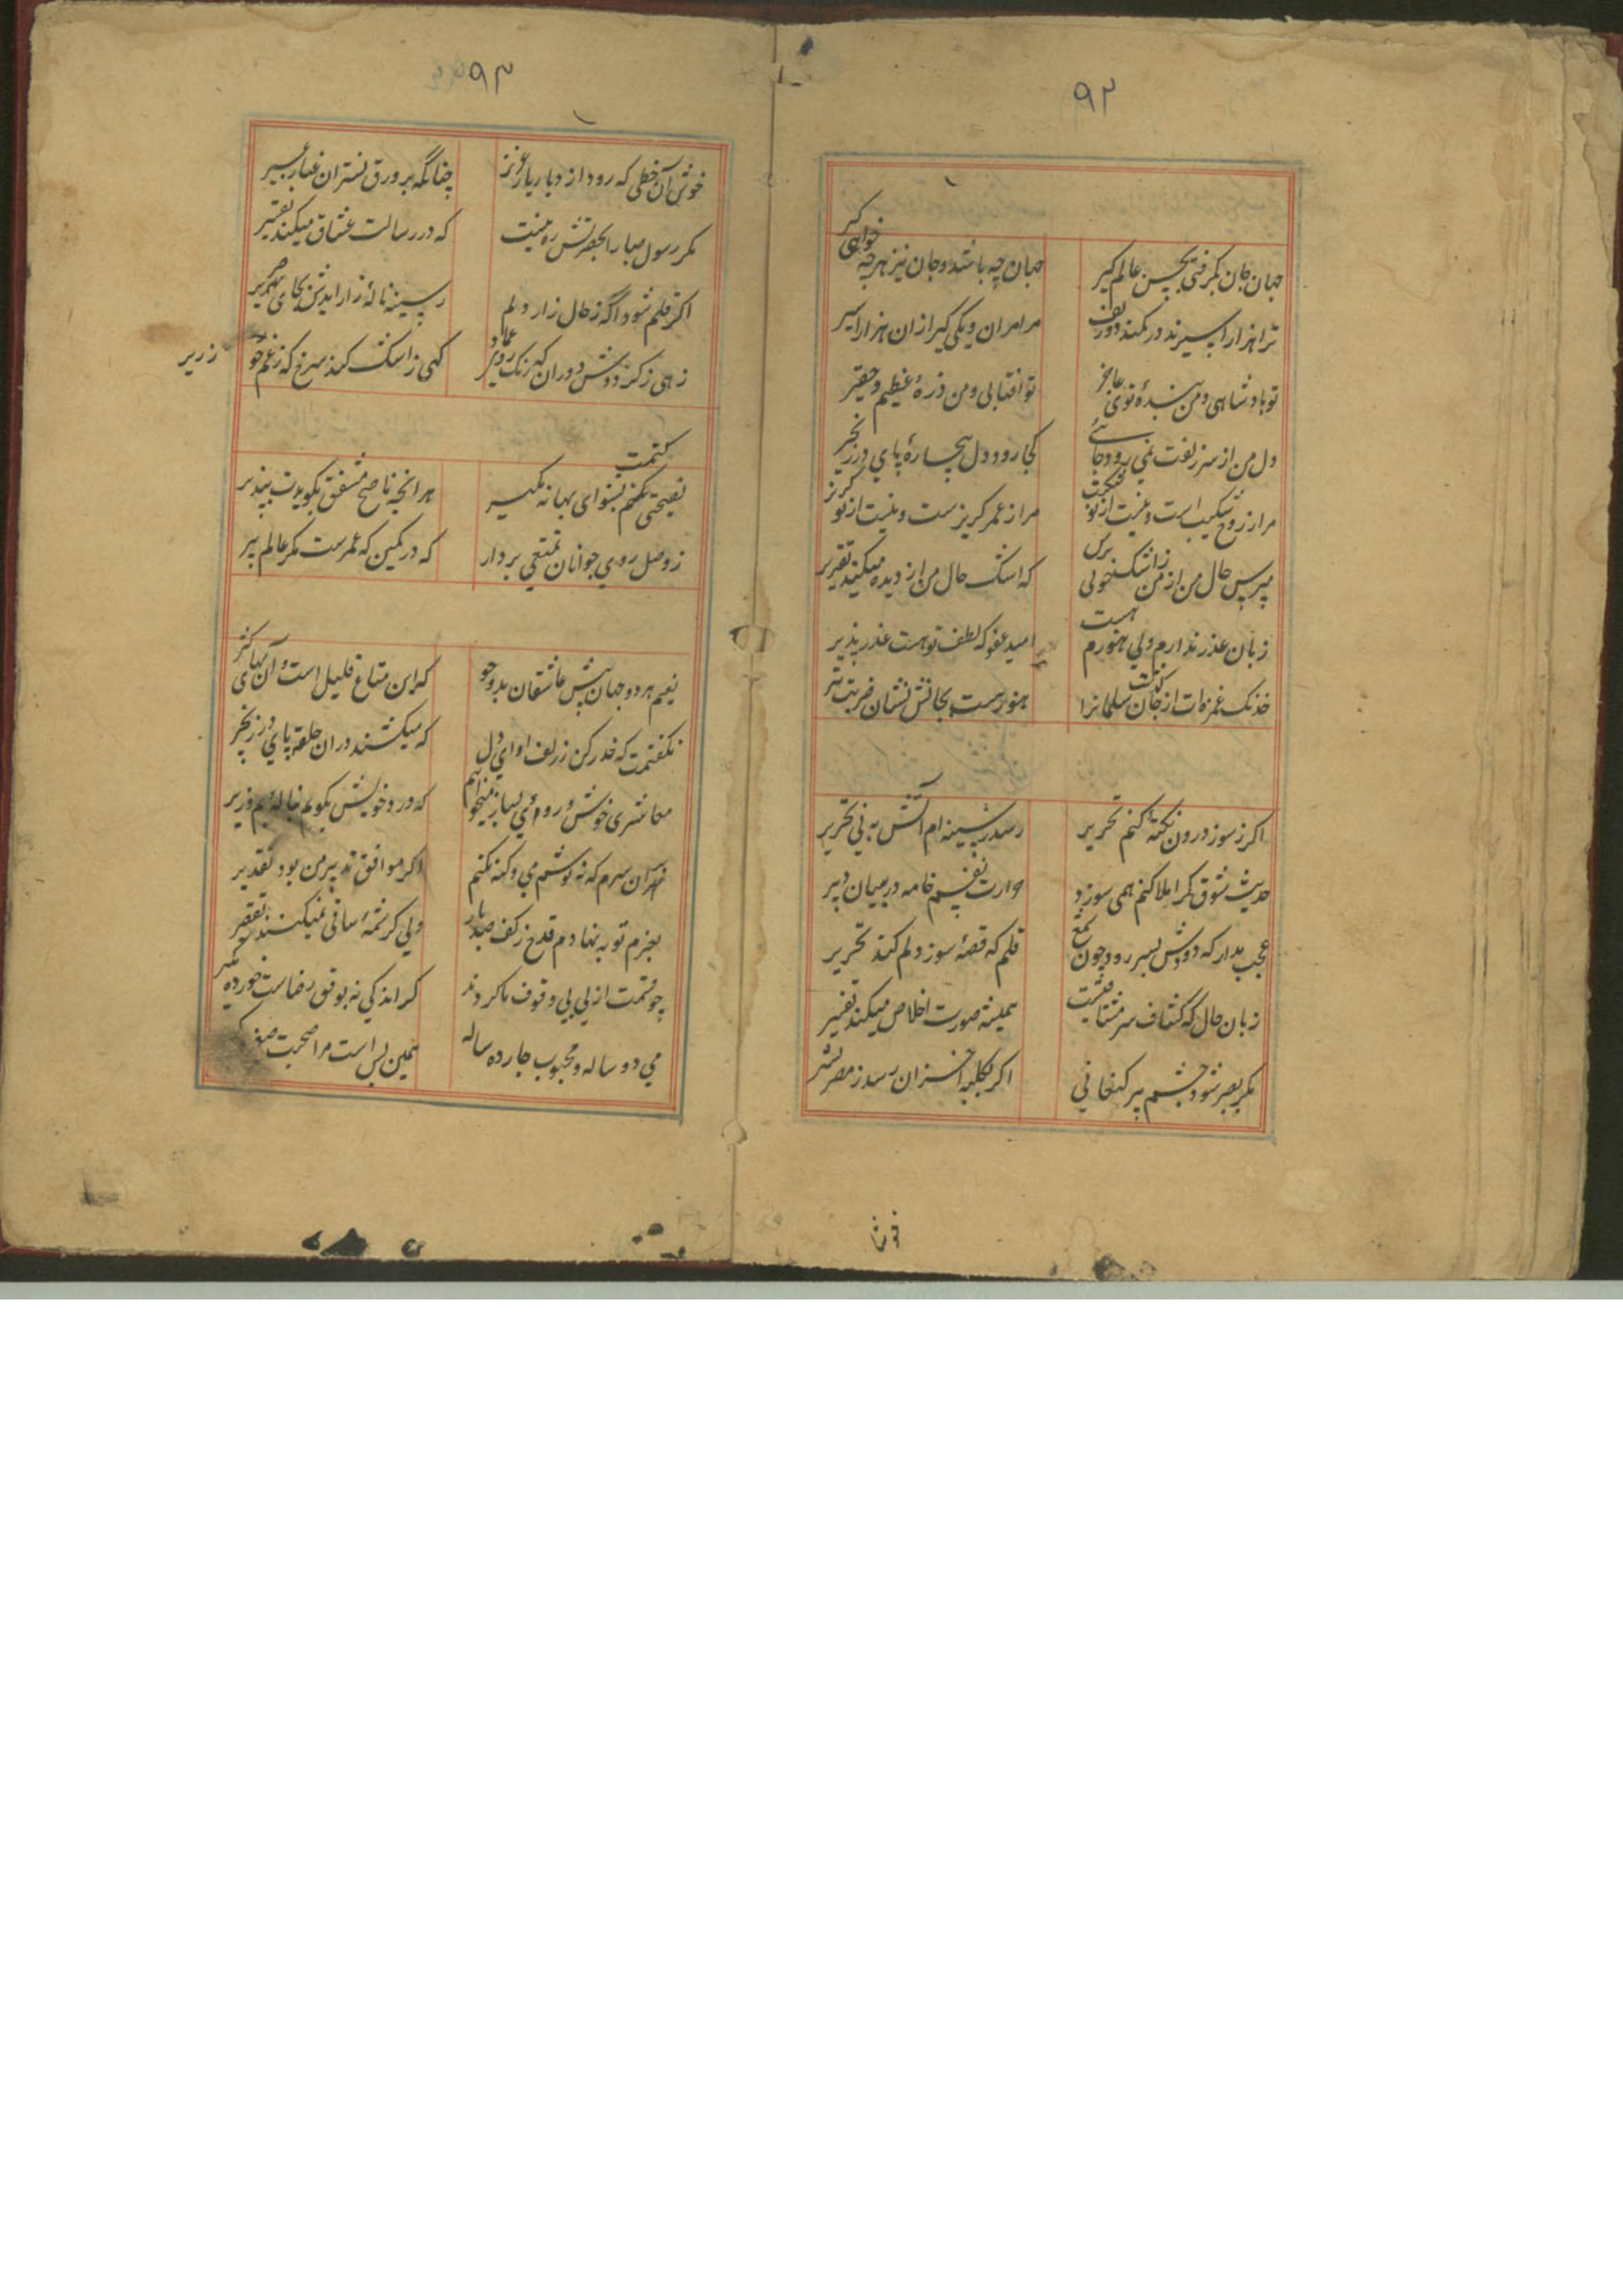 ۹۲
جهان جان بگرفتی بحسن عالم گیر
جهان چه باشد و جان نیز هرچه خواهی گیر
ترا هزار اسیرند در کمند دو زلف
مرا مران و یکی گیر از ان هزار اسیر
تو پادشاهی و من بنده توی عاجز
تو افتابی و من ذرهٔ عظیم و حقیر
دل من از سر زلفت نمی رود جائی
کجا رود دل بیچارهٔ پای در زنجیر
مرا ز روح شکیب است و نیست از تو شکیب
مرا ز عمر گریز ست و نیست از تو گریز
مپرس حال من از من ز اشک خونی پرس
که اشک حال من از دیده میکند تقریر
زبان عذر ندارم ولی هنوزم هست
امید عفو که لطف تو هست عذر پذیر
خدنک غمزه‌ات از جان سلمانرا
هنور هست بجانش نشان ضربت تیر
اکر ز سوز درون نکتهٔ کنم تحریر
رسد ز سینه ام آتش به نی تحریر
حدیث شوق کر املا کنم همی سوزد
حرارت نفسم خامه در میان دبیر
عجب مدار که دودش بسر رود چون شمع
قلم که قصهٔ سوز دلم کند تحریر
زبان حال که کشاف سر مشتاقیست
همیشه صورت اخلاص میکند تفسیر
مکر بصیر شود چشم پیر کنعانی
اکر بکلبه احزان رسد ز مصر بشیر
خوش آن
۹۳
خوش آن خطی که رود از دیار یار عزیز
چنانکه بر ورق نستران غبار عبیر
مکر رسول صبا را بحضرتش ره نیست
که در رسالت عشاق میکند تقصیر
اکر قلم شود اگه ز حال زار دلم
ز سینه نالهٔ زار ایدش بجای صریر
زهی ز کنز دوش دوران که رنک روی عماد
کهی ز اشک کند سرخ که ز غم چو زریر
نصیحتی کنمت بشنو ای بهانه مکیر
هر انچه ناصح مشفق بکویدت بپذیر
ز وصل روی جوانان تمتعی بردار
که در کمین که عمرست مکر عالم پیر
نعیم هر دو جهان پیش عاشقان بدو جو
که این متاع قلیل است و آن بهای کثیر
نکفتمت که حذر کن ز زلف او ای دل
که میکشند دران حلقه پای در زنجیر
معاشری خوش و رودی بساز میخواهم
که درد خویش بکویم بناله بم و زیر
بران سرم که نه نوشم می و کنه نکنم
اکر موافق تدبیر من بود تقدیر
بعزم توبه نهادم قدح ز کف صد بار
ولی کرشمهٔ ساقی نمیکند تقصیر
چو قسمت ازلی بی وقوف ما کردند
کر اندکی نه بوفق رضاست خورده مکیر
می دو ساله و محبوب چارده ساله
همین بس است مرا صحبت صغیر